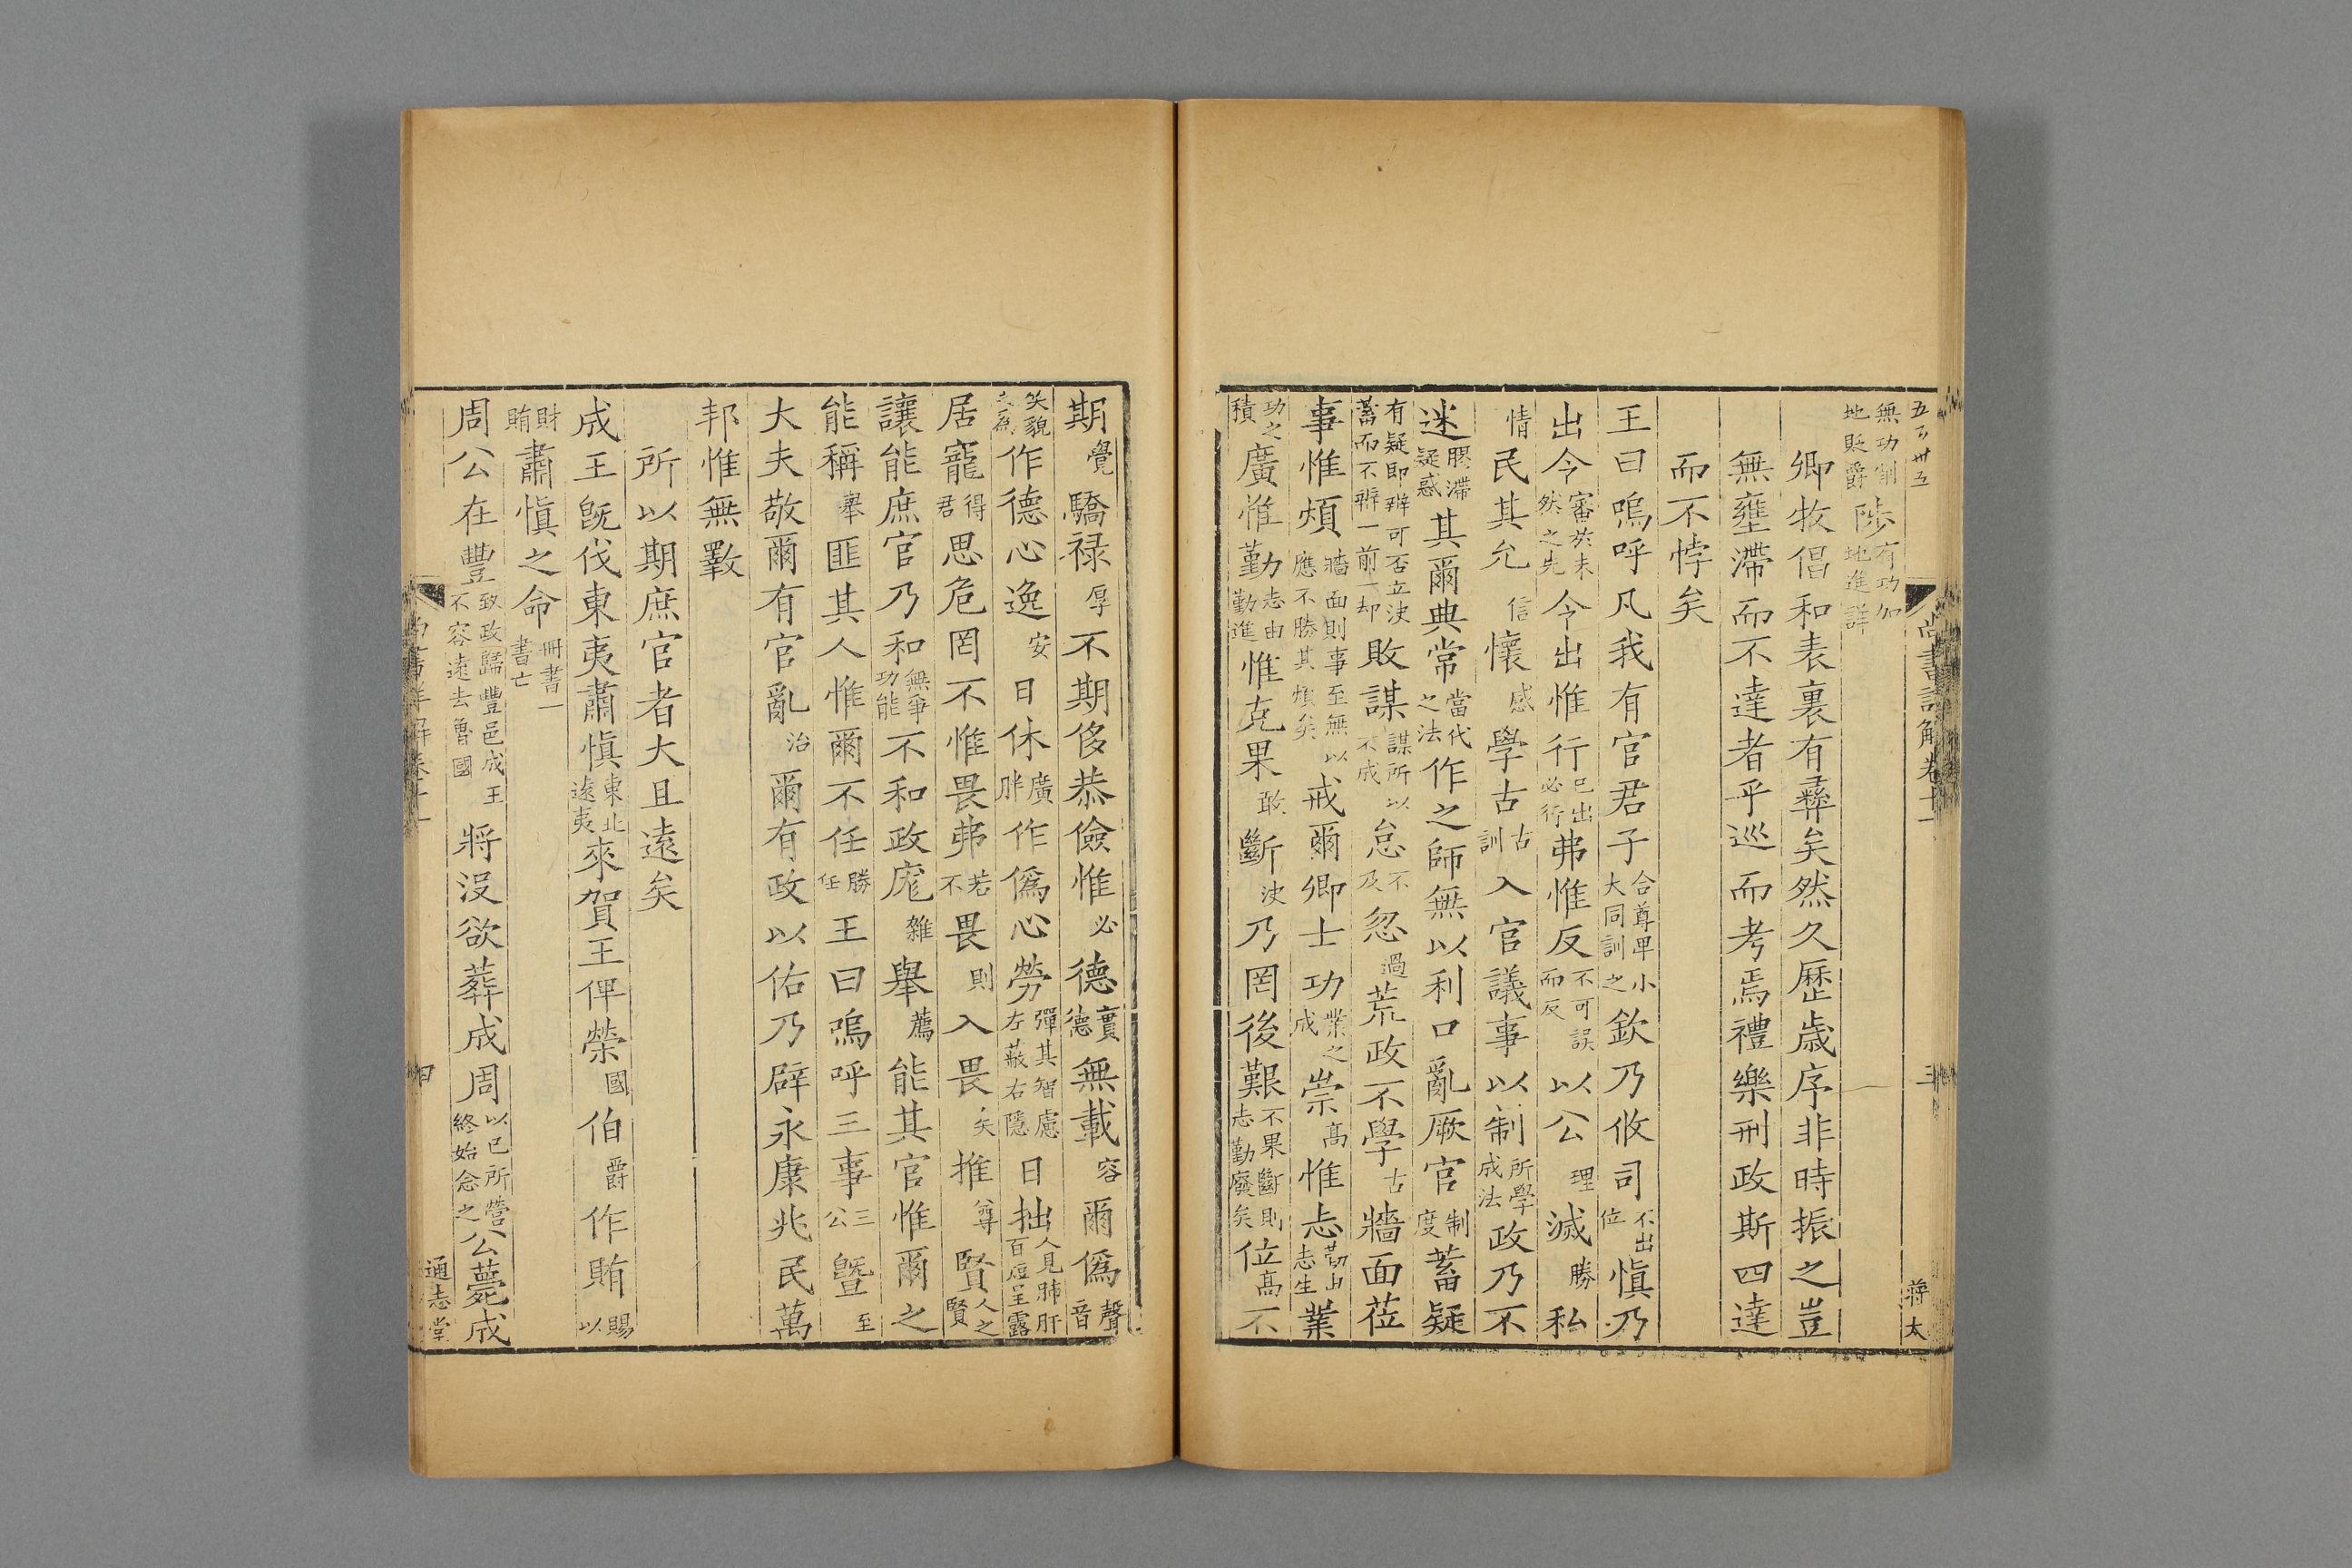 五百卅五 尚書詳解卷十一 三 蔣太
無功削地貶爵陟有功加地進詳
卿牧倡和表裏有彝矣然久歷歲序非時振之豈
無壅滯而不達者乎巡而考焉禮樂刑政斯四達
而不悖矣
王曰嗚呼凡我有官君子合尊畢小大同訓之欽乃攸司不出位慎乃
出令審於未然之先令出惟行已出必行弗惟反不可誤而反以公理滅勝私
情民其允信懷感學古古訓入官議事以制所學成法政乃不
迷膠滯疑惑其爾典常當代之法作之師無以利口亂厥官制度蓄疑
有疑即辨可否立決蓄而不辨一前一却敗謀謀所以不成怠不及忽過荒政不學古牆面莅
事惟煩牆面則事至無以應不勝其煩矣戒爾卿士功業之成崇高惟志勤由志生業
功之積廣惟勤志由勤進惟克果敢斷決乃罔後艱不果斷則志勤廢矣位高不
期覺驕祿厚不期侈恭儉惟必德實德無載容爾偽聲音
笑貌作德心逸安日休廣胖作偽心勞殫其智慮左蔽右隱日拙人見肺肝百短呈露
居寵得君思危罔不惟畏弗若不畏則入畏矣推尊賢人之賢
讓能庶官乃和無爭功能不和政厖雜舉薦能其官惟爾之
能稱舉匪其人惟爾不任勝任王曰嗚呼三事三公暨至
大夫敬爾有官亂治爾有政以佑乃辟永康兆民萬
邦惟無斁
所以期庶官者大且遠矣
成王既伐東夷肅慎東北遠夷來賀王俾榮國伯爵作賄賜以
財賄肅慎之命冊書一書亡
周公在豐致政歸豐邑成王不容遠去魯國將沒欲葬成周以已所營終始念之公薨成
尚書詳解卷十一 四 通志堂